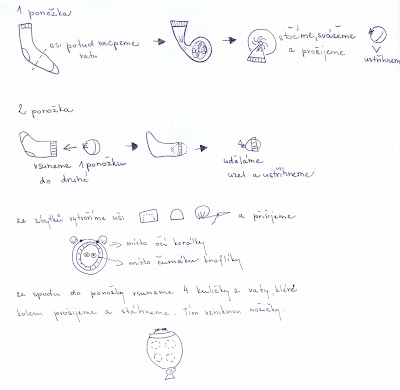 1 ponožka
asi potud nacpeme
vatu
stočíme, svážeme
a prošijeme
ustřihneme
2 ponožka
vsuneme 1 ponožku
do druhé
uděláme
uzel a ustřihneme
ze zbytků vytvoříme uši
a přišijeme
místo očí korálky
místo čumáku knoflíky
ze spodu do ponožky vsuneme 4 kuličky z vaty, které
kolem prošijeme a stáhneme. Tím vzniknou nožičky.